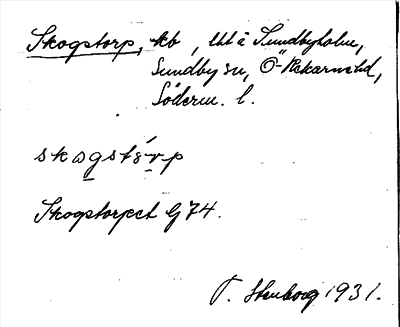 Skogstorp, kb, lht å Sundbyholm,
Sundby sn, Ö-Rekarne hd,
Söderm. l.
skogstårp
Skogstorpet G 74.
T. Stenborg 1931.